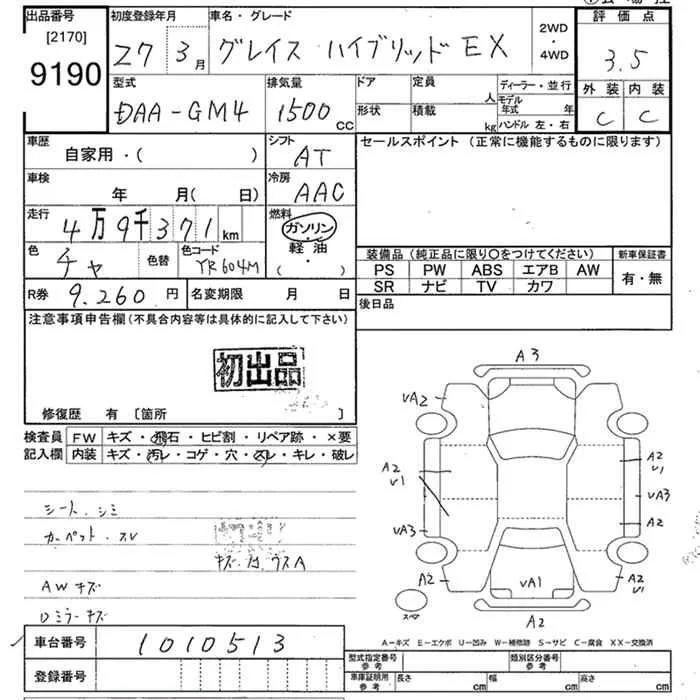 出品番号
[2170]
9190
初度登録年月
27 3月
車名・グレード
グレイス ハイブリッド EX
2WD
・
4WD
評価点
3.5
外装 内装
C C
型式
DAA-GM4
排気量
1500 CC
ドア
形状
定員 人
積載 kg
ディーラー・並行
モデル年式 年
ハンドル 左・右
車歴
自家用・( )
シフト
AT
セールスポイント (正常に機能するものに限ります)
車検
年 月( 日)
冷房
AAC
走行
4万9千371km
燃料
ガソリン・
軽油・
( )
色
チャ
色替
色コード
YR604M
装備品(純正品に限り〇をつけてください)
PS PW ABS エアB AW
SR ナビ TV カワ
新車保証書
有・無
R券 9.260円
名変期限 月 日
後日品
注意事項申告欄(不具合内容等は具体的に記入して下さい)
初出品
修復歴 有 [箇所 ]
検査員
記入欄
FW キズ・飛石・ヒビ割・リペア跡・×要
内装 キズ・汚レ・コゲ・穴・スレ・キレ・破レ
シート.シミ
カーペット.スレ
AWキズ
Dミラーキズ
A3
VA2
A2
V1
VA3
A2
A2
V1
VA3
A2
A2
V1
VA1
A2
スペア
A-キズ E-エクボ U-凹み W-補修跡 S-サビ C-腐食 XX-交換済
車台番号 1010513
登録番号
型式指定番号
参考
類別区分番号
参考
車庫証明用
参考
長さ cm
幅 cm
高さ cm